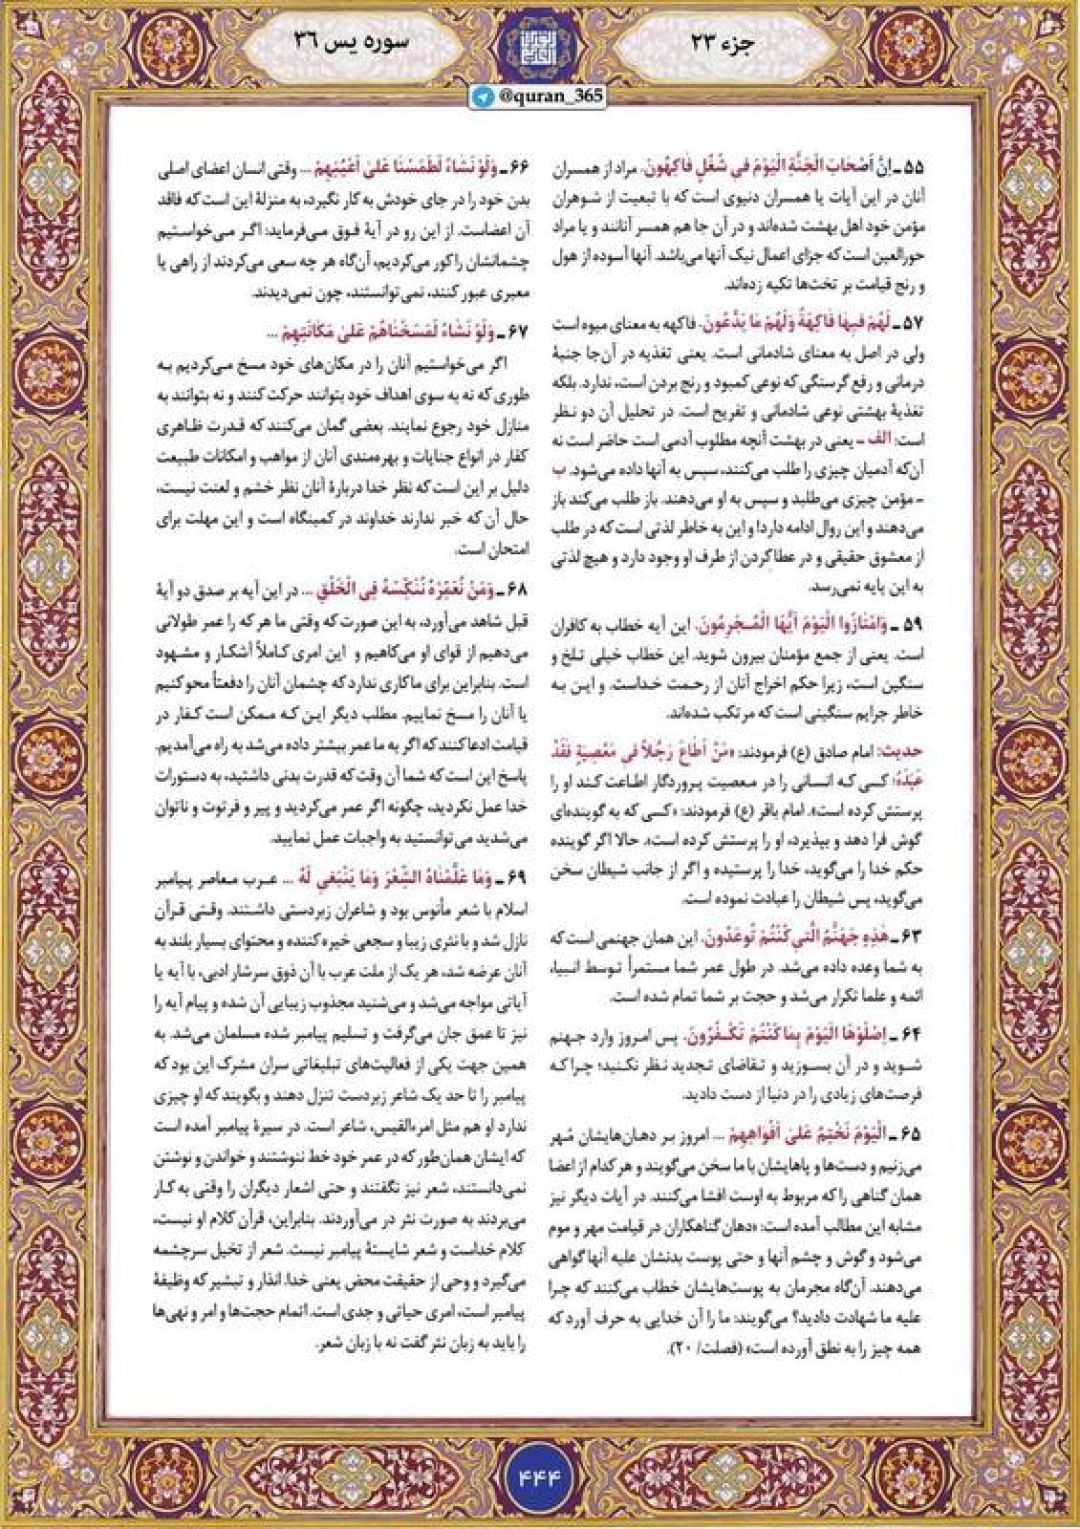 جزء ۲۳
سوره یس ۳۶
@quran_365
۵۵ ـ اِنَّ اَصْحَابَ الْجَنَّةِ الْیَوْمَ فِی شُغُلٍ فَاکِهُونَ. مراد از همسران
آنان در این آیات یا همسران دنیوی است که با تبعیت از شوهران
مؤمن خود اهل بهشت شده‌اند و در آن جا هم همسر آنانند و یا مراد
حورالعین است که جزای اعمال نیک آنها می‌باشد. آنها آسوده از هول
و رنج قیامت بر تخت‌ها تکیه زده‌اند.
۵۷ ـ لَهُمْ فِیهَا فَاکِهَةٌ وَلَهُمْ مَا یَدَّعُونَ. فاکهه به معنای میوه است
ولی در اصل به معنای شادمانی است. یعنی تغذیه در آن‌جا جنبهٔ
درمانی و رفع گرسنگی که نوعی کمبود و رنج بردن است، ندارد. بلکه
تغذیهٔ بهشتی نوعی شادمانی و تفریح است. در تحلیل آن دو نظر
است: الف ـ یعنی در بهشت آنچه مطلوب آدمی است حاضر است نه
آن‌که آدمیان چیزی را طلب می‌کنند، سپس به آنها داده می‌شود. ب
ـ مؤمن چیزی می‌طلبد و سپس به او می‌دهند. باز طلب می‌کند باز
می‌دهند و این روال ادامه دارد! و این به خاطر لذتی است که در طلب
از معشوق حقیقی و در عطاکردن از طرف او وجود دارد و هیچ لذتی
به این پایه نمی‌رسد.
۵۹ ـ وَامْتَازُوا الْیَوْمَ اَیُّهَا الْمُجْرِمُونَ. این آیه خطاب به کافران
است. یعنی از جمع مؤمنان بیرون شوید. این خطاب خیلی تلخ و
سنگین است، زیرا حکم اخراج آنان از رحمت خداست. و این به
خاطر جرایم سنگینی است که مرتکب شده‌اند.
حدیث: امام صادق (ع) فرمودند: «مَنْ اَطَاعَ رَجُلاً فی مَعْصِیَةٍ فَقَدْ
عَبَدَهُ؛ کسی که انسانی را در معصیت پروردگار اطاعت کند او را
پرستش کرده است». امام باقر (ع) فرمودند: «کسی که به گوینده‌ای
گوش فرا دهد و بپذیرد، او را پرستش کرده است. حالا اگر گوینده
حکم خدا را می‌گوید، خدا را پرستیده و اگر از جانب شیطان سخن
می‌گوید، پس شیطان را عبادت نموده است.
۶۳ ـ هَذِهِ جَهَنَّمُ الَّتِی کُنْتُمْ تُوعَدُونَ. این همان جهنمی است که
به شما وعده داده می‌شد. در طول عمر شما مستمراً توسط انبیا،
ائمه و علما تکرار می‌شد و حجت بر شما تمام شده است.
۶۴ ـ اِصْلَوْهَا الْیَوْمَ بِمَا کُنْتُمْ تَکْفُرُونَ. پس امروز وارد جهنم
شوید و در آن بسوزید و تقاضای تجدید نظر نکنید؛ چرا که
فرصت‌های زیادی را در دنیا از دست دادید.
۶۵ ـ اَلْیَوْمَ نَخْتِمُ عَلَیٰ اَفْوَاهِهِمْ ... امروز بر دهان‌هایشان مُهر
می‌زنیم و دست‌ها و پاهایشان با ما سخن می‌گویند و هر کدام از اعضا
همان گناهی را که مربوط به اوست افشا می‌کنند. در آیات دیگر نیز
مشابه این مطالب آمده است: «دهان گناهکاران در قیامت مهر و موم
می‌شود و گوش و چشم آنها و حتی پوست بدنشان علیه آنها گواهی
می‌دهند. آن‌گاه مجرمان به پوست‌هایشان خطاب می‌کنند که چرا
علیه ما شهادت دادید؟ می‌گویند: ما را آن خدایی به حرف آورد که
همه چیز را به نطق آورده است» (فصلت/ ۲۰).
۶۶ ـ وَلَوْ نَشَاءُ لَطَمَسْنَا عَلَیٰ اَعْیُنِهِمْ ... وقتی انسان اعضای اصلی
بدن خود را در جای خودش به کار نگیرد، به منزلهٔ این است که فاقد
آن اعضاست. از این رو در آیهٔ فوق می‌فرماید: اگر می‌خواستیم
چشمانشان را کور می‌کردیم، آن‌گاه هر چه سعی می‌کردند از راهی یا
معبری عبور کنند، نمی‌توانستند، چون نمی‌دیدند.
۶۷ ـ وَلَوْ نَشَاءُ لَمَسَخْنَاهُمْ عَلَیٰ مَکَانَتِهِمْ ...
اگر می‌خواستیم آنان را در مکان‌های خود مسخ می‌کردیم به
طوری که نه به سوی اهداف خود بتوانند حرکت کنند و نه بتوانند به
منازل خود رجوع نمایند. بعضی گمان می‌کنند که قدرت ظاهری
کفار در انواع جنایات و بهره‌مندی آنان از مواهب و امکانات طبیعت
دلیل بر این است که نظر خدا دربارهٔ آنان نظر خشم و لعنت نیست،
حال آن که خبر ندارند خداوند در کمینگاه است و این مهلت برای
امتحان است.
۶۸ ـ وَمَنْ نُعَمِّرْهُ نُنَکِّسْهُ فِی الْخَلْقِ ... در این آیه بر صدق دو آیهٔ
قبل شاهد می‌آورد، به این صورت که وقتی ما هر که را عمر طولانی
می‌دهیم از قوای او می‌کاهیم و این امری کاملاً آشکار و مشهود
است. بنابراین برای ما کاری ندارد که چشمان آنان را دفعتاً محو کنیم
یا آنان را مسخ نماییم. مطلب دیگر این که ممکن است کفار در
قیامت ادعا کنند که اگر به ما عمر بیشتر داده می‌شد به راه می‌آمدیم.
پاسخ این است که شما آن وقت که قدرت بدنی داشتید، به دستورات
خدا عمل نکردید، چگونه اگر عمر می‌کردید و پیر و فرتوت و ناتوان
می‌شدید می‌توانستید به واجبات عمل نمایید.
۶۹ ـ وَمَا عَلَّمْنَاهُ الشِّعْرَ وَمَا یَنْبَغِی لَهُ ... عرب معاصر پیامبر
اسلام با شعر مأنوس بود و شاعران زبردستی داشتند. وقتی قرآن
نازل شد و با نثری زیبا و سجعی خیره کننده و محتوای بسیار بلند به
آنان عرضه شد، هر یک از ملت عرب با آن ذوق سرشار ادبی، با آیه یا
آیاتی مواجه می‌شد و می‌شنید مجذوب زیبایی آن شده و پیام آیه را
نیز تا عمق جان می‌گرفت و تسلیم پیامبر شده مسلمان می‌شد. به
همین جهت یکی از فعالیت‌های تبلیغاتی سران مشرک این بود که
پیامبر را تا حد یک شاعر زبردست تنزل دهند و بگویند که او چیزی
ندارد او هم مثل امرءالقیس، شاعر است. در سیرهٔ پیامبر آمده است
که ایشان همان‌طور که در عمر خود خط ننوشتند و خواندن و نوشتن
نمی‌دانستند، شعر نیز نگفتند و حتی اشعار دیگران را وقتی به کار
می‌بردند به صورت نثر در می‌آوردند. بنابراین، قرآن کلام او نیست،
کلام خداست و شعر شایستهٔ پیامبر نیست. شعر از تخیل سرچشمه
می‌گیرد و وحی از حقیقت محض یعنی خدا. انذار و تبشیر که وظیفهٔ
پیامبر است، امری حیاتی و جدی است. اتمام حجت‌ها و امر و نهی‌ها
را باید به زبان نثر گفت نه با زبان شعر.
۴۴۴